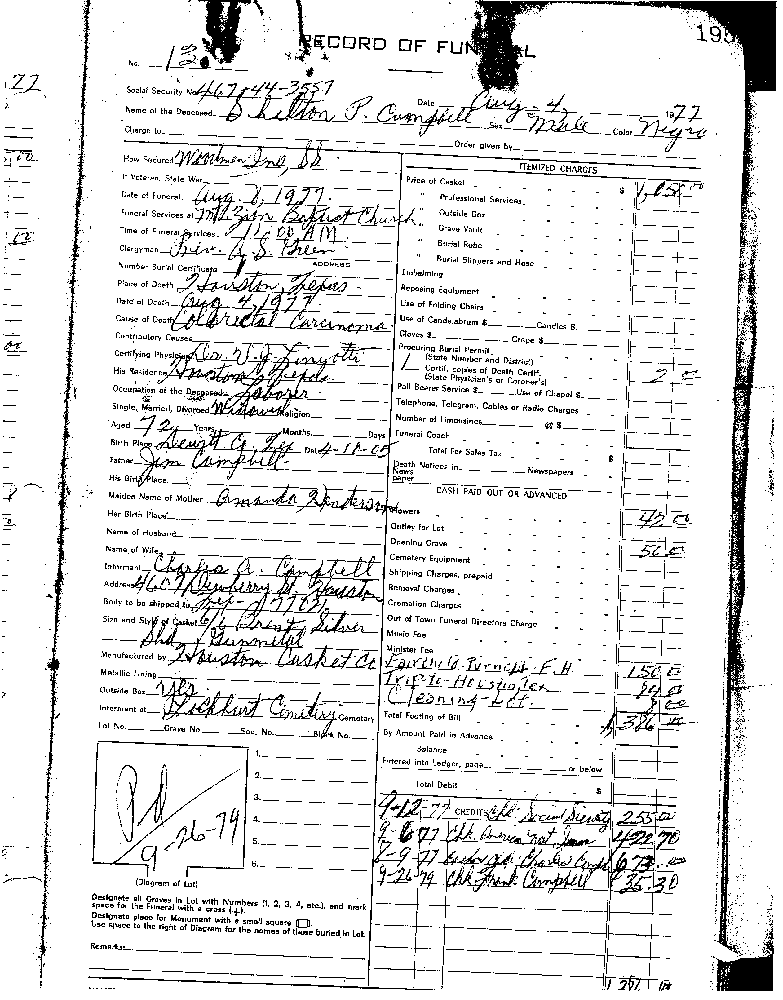 195
RECORD OF FUNERAL
No. 13
Social Security No. 467-44-3557
Date Aug. 4, 1977
Name of the Deceased Shelton P. Campbell Sex Male Color Negro
Charge to Order given by
How Secured Woodmen Ins, SS.
If Veteran, State War
Date of Funeral Aug. 8, 1977.
Funeral Services at Mt. Zion Baptist Church
Time of Funeral Services 11:00 A.M.
Clergyman Rev. A. S. Green
ADDRESS
Number Burial Certificate
Place of Death Houston, Texas
Date of Death Aug 4, 1977
Cause of Death Colorectal Carcinoma
Contributory Causes
Certifying Physician Dr. V. J.
His Residence Houston, Texas
Occupation of the Deceased Laborer
Single, Married, Divorced Widower Religion
Aged 72 Years Months Days
Birth Place Dewitt Co. Tex Date 4-11-05
Father Jim Campbell
His Birth Place
Maiden Name of Mother Amanda Henderson
Her Birth Place
Name of Husband
Name of Wife
Informant Charles A. Campbell
Address 4607 Dewberry St. Houston
Body to be shipped to Tex- 77021
Size and Style of Casket 6/6 Silver
Shd. Gunmetal
Manufactured by Houston Casket Co
Metallic Lining
Outside Box Yes
Interment at Lockhart Cemetery Cemetary
Lot No. Grave No. Sec. No. Block No.
Pd
9-26-79
1.
2.
3.
4.
5.
6.
(Diagram of Lot)
Designate all Graves in Lot with Numbers (1, 2, 3, 4, etc.), and mark
space for the Funeral with a cross (+).
Designate place for Monument with a small square (□).
Use space to the right of Diagram for the names of those buried in Lot.
Remarks
ITEMIZED CHARGES
Price of Casket $ 1,050 00
" Professional Services
" Outside Box
" Grave Vault
" Burial Robe
" Burial Slippers and Hose
Embalming
Reposing Equipment
Use of Folding Chairs
Use of Candelabrum $ Candles $
Gloves $ Crape $
Procuring Burial Permit
(State Number and District)
1 Certif. copies of Death Certif.
(State Physician's or Coroner's) 2 00
Pall Bearer Service $ Use of Chapel $
Telephone, Telegram, Cables or Radio Charges
Number of Limousines @ $
Funeral Coach
Total For Sales Tax $
Death Notices in Newspapers
News
paper
CASH PAID OUT OR ADVANCED
Flowers 42 00
Outlay for Lot
Opening Grave 50 00
Cemetery Equipment
Shipping Charges, prepaid
Removal Charges
Cremation Charges
Out of Town Funeral Directors Charge
Music Fee
Minister Fee
F. H. 150 00
Trip to Houston
Cleaning Lot
Total Footing of Bill $ 1,386 00
By Amount Paid in Advance
Balance
Entered into Ledger, page or below
Total Debit $
9-12-77 CREDITS Chk Social Security 255 00
9-6-77 Chk America Nat 422 70
Charles Campbell 673.00
9-26-79 Chk Frank Campbell 35.30
77
00